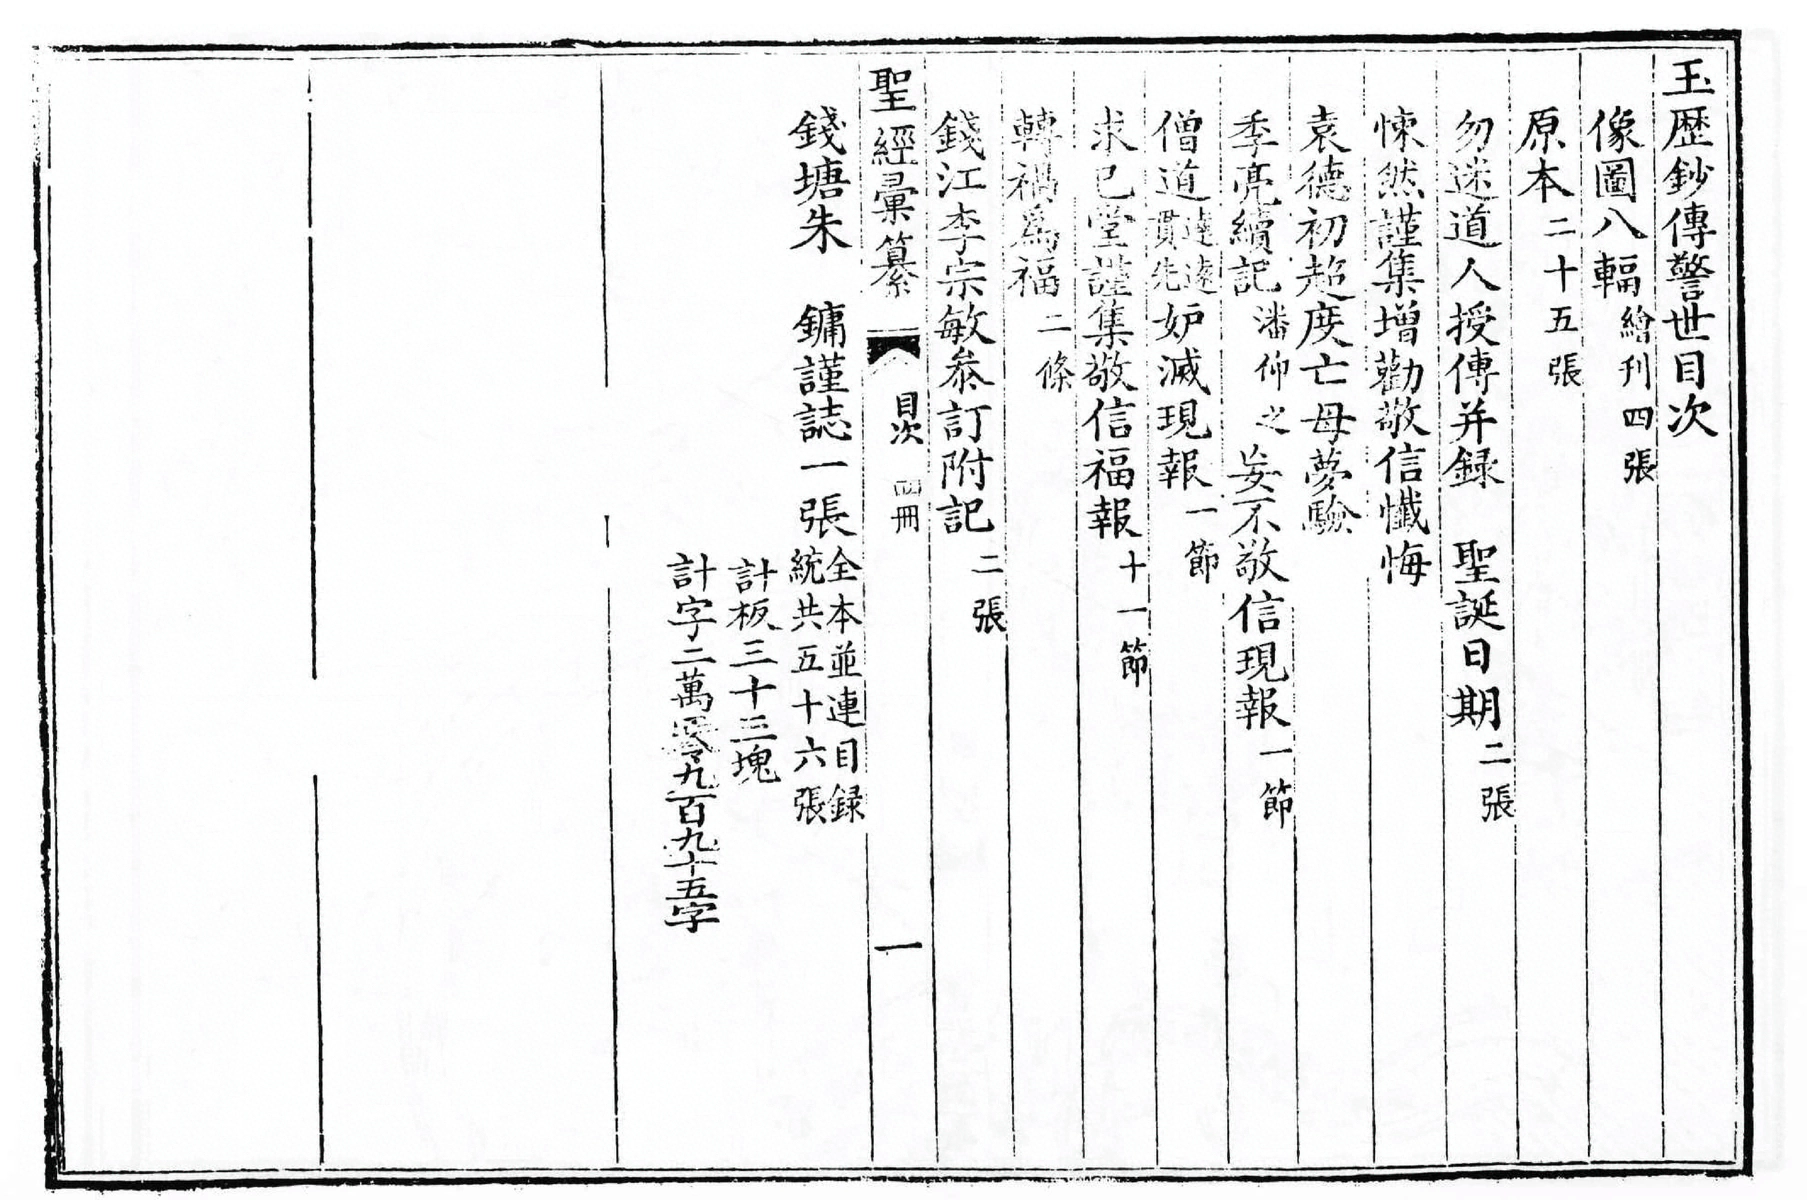 玉歷鈔傳警世目次
像圖八輻 繪刊四張
原本 二十五張
勿迷道人授傳并録 聖誕日期 二張
悚然謹集增勸敬信懺悔
袁德初超度亡母夢驗
季亮續記 潘仰之 妄不敬信現報 一節
僧道 達遠 貫先 妒滅現報 一節
求已堂謹集敬信福報 十一節
轉禍為福 二條
錢江李宗敏叅訂附記 二張
聖經彙纂 目次 四冊 一
錢塘朱 鏞謹誌一張 全本並連目録
統共五十六張
計板三十三塊
計字二萬零九百九十五字